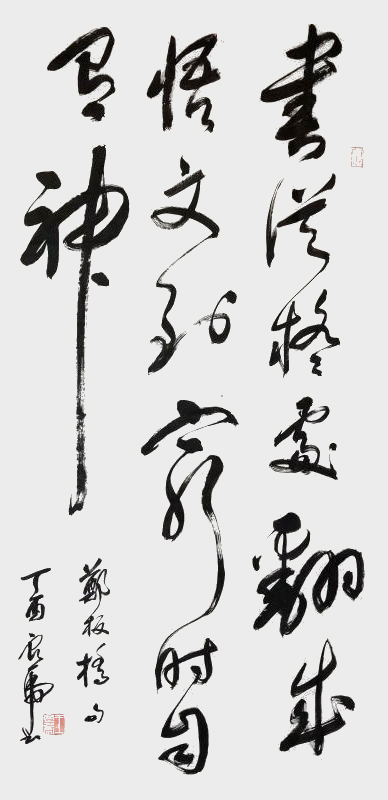 書從疑處翻成
悟文到窮時自
有神
鄭板橋句
丁酉書